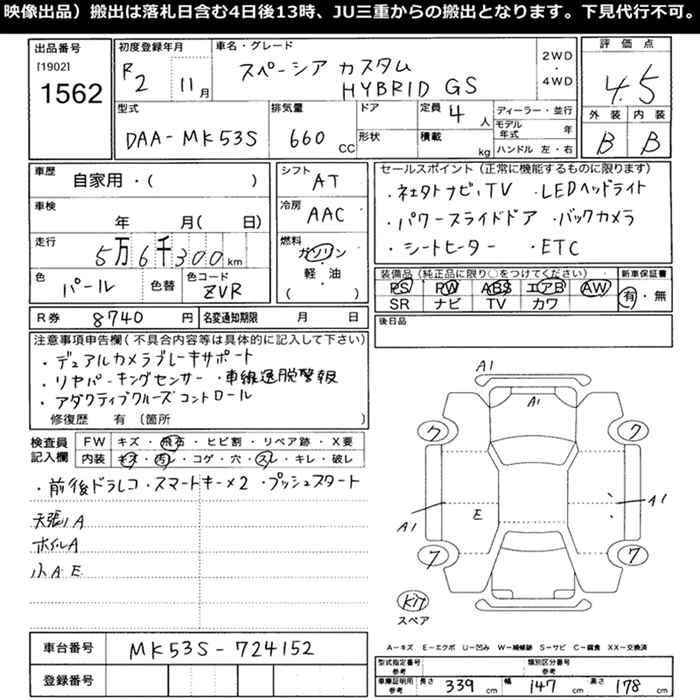 映像出品）搬出は落札日含む4日後13時、JU三重からの搬出となります。下見代行不可。
出品番号
[1902]
1562
初度登録年月
R2 11月
車名・グレード
スペーシア カスタム
HYBRID GS
2WD
・
4WD
評価点
4.5
外装 内装
B B
型式
DAA-MK53S
排気量
660 CC
ドア
形状
定員 4 人
積載 kg
ディーラー・並行
モデル年式 年
ハンドル 左・右
車歴
自家用・( )
車検
年 月( 日)
走行
5万6千300km
色
パール
色替
色コード
ZVR
シフト
AT
冷房
AAC
燃料
ガソリン
・
軽・油
( )
セールスポイント（正常に機能するものに限ります）
・社外ナビ,TV ・LEDヘッドライト
・パワースライドドア ・バックカメラ
・シートヒーター ・ETC
装備品（純正品に限り○をつけてください）
PS PW ABS エアB AW
SR ナビ TV カワ
新車保証書
有・無
R券 8740 円
名変通知期限 月 日
後日品
注意事項申告欄（不具合内容等は具体的に記入して下さい）
・デュアルカメラブレーキサポート
・リヤパーキングセンサー ・車線逸脱警報
・アダクティブクルーズコントロール
修復歴 有 〔箇所 〕
検査員記入欄
FW キズ・飛石・ヒビ割・リペア跡・X要
内装 キズ・汚レ・コゲ・穴・スレ・キレ・破レ
・前後ドラレコ ・スマートキー×2 ・プッシュスタート
天張リA
ホイルA
小A E
A1
A1
ワ ワ
A1 E A1
7 7
キット
スペア
A－キズ E－エクボ U－凹み W－補修跡 S－サビ C－腐食 XX－交換済
車台番号
MK53S-724152
登録番号
型式指定番号 参考
類別区分番号 参考
車庫証明用 参考 長さ 339 cm 幅 147 cm 高さ 178 cm